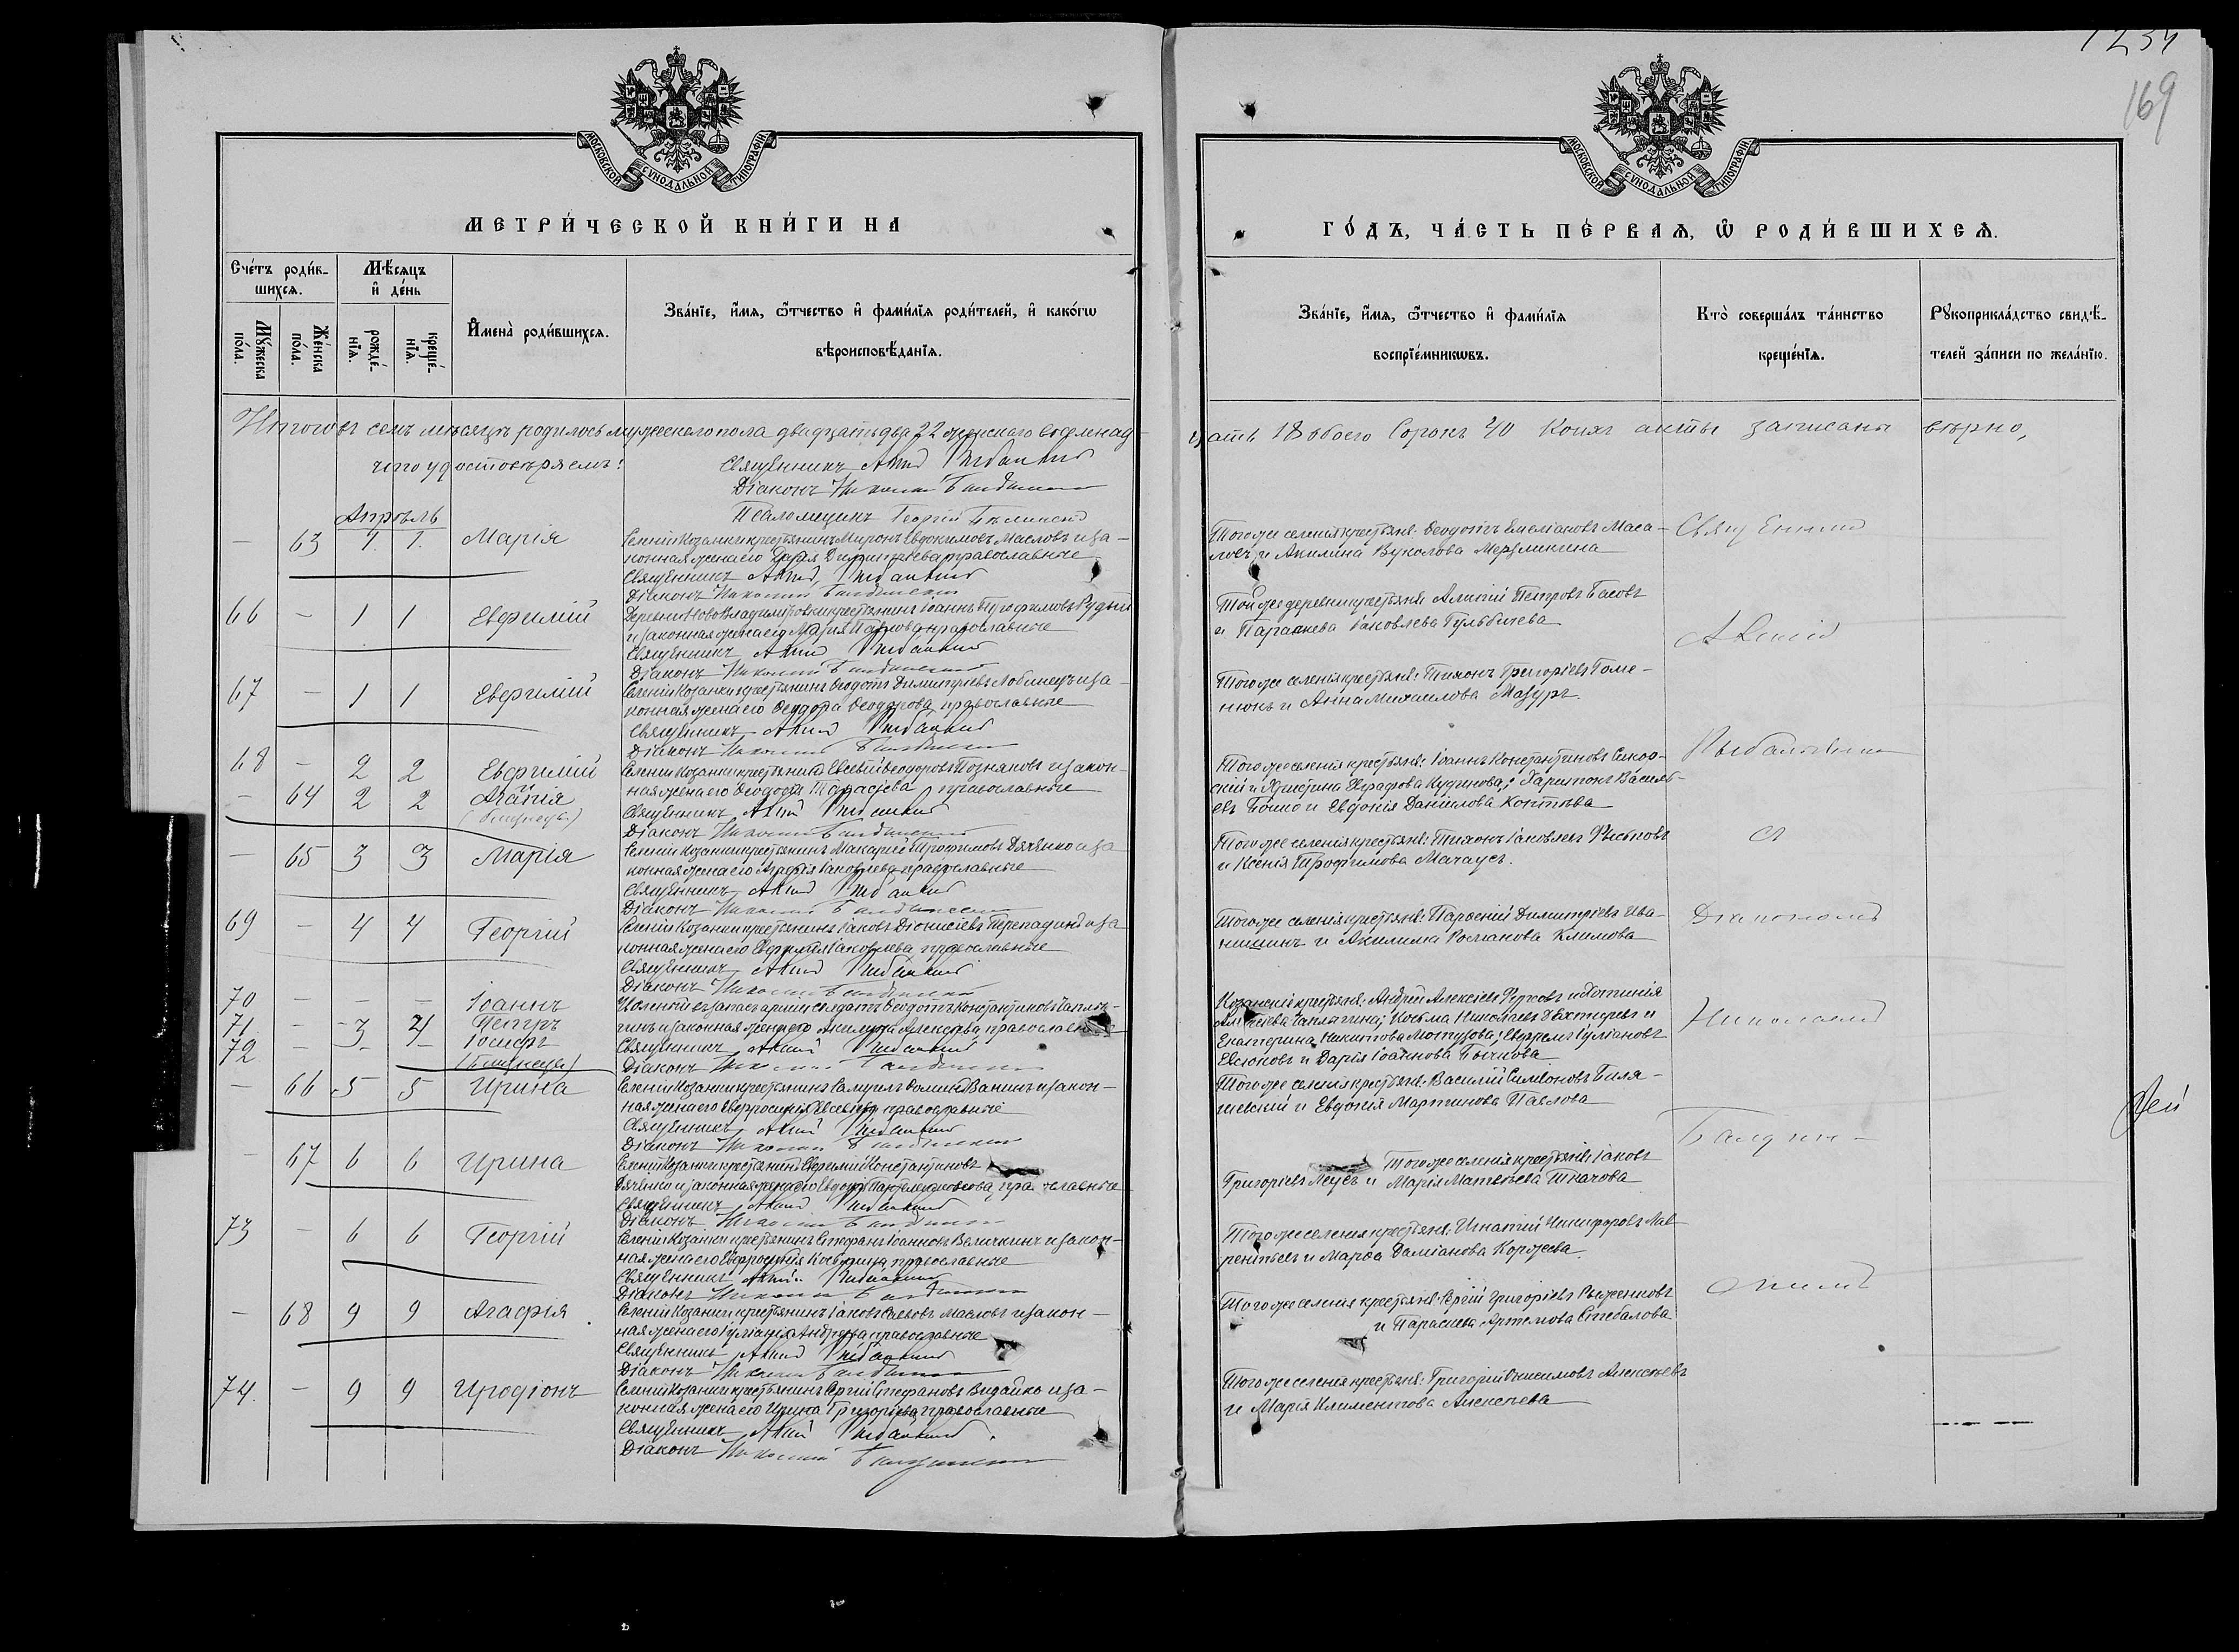 1234
169
МОСКОВСКОЙ СѴНОДАЛЬНОЙ ТИПОГРАФІИ
МОСКОВСКОЙ СѴНОДАЛЬНОЙ ТИПОГРАФІИ
МЕТРИ́ЧЕСКОЙ КНИ́ГИ НА
ГО́ДЪ, ЧА́СТЬ ПЕ́РВАЯ, Ѡ РОДИ́ВШИХСЯ.
Сче́тъ роди́в-
шихся.
Мѣ́сяцъ
и҆ де́нь
Мꙋ́жеска
по́ла.
Же́нска
по́ла.
рожде́-
нїя.
креще́-
нїя.
И҆мена̀ роди́вшихся.
Зва́нїе, и҆́мя, ѻ҆́тчество и҆ фами́лїя роди́телей, и҆ како́гѡ
вѣроисповѣ́данїя.
Зва́нїе, и҆́мя, ѻ҆́тчество и҆ фами́лїя
воспрїе́мникѡвъ.
Кто̀ соверша́лъ та́инство
креще́нїя.
Рꙋкоприкла́дство свидѣ́-
телей за́писи по жела́нїю.
Итого въ семъ мѣсяцѣ родилось мужескаго пола двадцать два 22 женскаго восемнад-
цать 18 обоего Сорокъ 40 Коихъ акты записаны вѣрно,
чего удостовѣряемъ:
Священникъ
Діаконъ Николай
Псаломщикъ Георгій
Апрѣль
— 63 1. 1. Марія
Селенія Козанки крестьянинъ Миронъ Евдокимовъ Масловъ и за-
конная жена его Дарія Димитріева православные
Священникъ
Діаконъ Николай
Того же селенія крестьяне: Ѳеодотъ Емеліановъ Маса-
ловъ и Акилина Вуколова
66 — 1 1 Евфимій
Деревни Ново Владимировки крестьянинъ Іоаннъ Трофимовъ Рудый
и законная жена его Марія Павлова православные
Священникъ
Діаконъ Николай
Той же деревни крестьяне Алексій Петровъ Басовъ
и Параскева Іаковлева Гульбичева
67 — 1 1 Евфимій
Селенія Козанки крестьянинъ Ѳеодотъ Димитріевъ Лобинецъ и за-
конная жена его Ѳеодора Ѳеодорова православные
Священникъ
Діаконъ Николай
Того же селенія крестьяне: Тихонъ Григоріевъ Гоме-
нюкъ и Анна Михаилова Мазуръ.
68 — 2 2 Евфимій
— 64 2 2 Агапія
(близнецы)
Селенія Козанки крестьянинъ Евсевій Ѳеодоровъ Позняковъ и закон-
ная жена его Ѳеодосія Тарасіева православные
Священникъ
Діаконъ Николай
Того же селенія крестьяне: Іоаннъ Константиновъ Сикор-
скій и Христина Евграфова Кудинова; Харитонъ Василь-
евъ Бойко и Евдокія Даніилова Коптева
— 65 3 3 Марія
Селенія Козанки крестьянинъ Макарій Трофимовъ Дяченко и за
конная жена его Агафія Іаковлева православные
Священникъ
Діаконъ Николай
Того же селенія крестьяне: Тихонъ Іаковлевъ Рыбковъ
и Ксенія Трофимова Мачаусъ.
69 — 4 4 Георгій
Селенія Козанки крестьянинъ Іаковъ Діонисіевъ Перепадинъ и за
конная жена его Евфимія Іаковлева православные
Священникъ
Діаконъ Николай
Того же селенія крестьяне: Парѳеній Димитріевъ Ива-
нишинъ и Акилина Романова Климова
70 — — — Іоаннъ
71 — 3 4 Петръ
72 — — — Іосифъ
(близнецы)
Уволенный въ запасъ арміи солдатъ Ѳеодотъ Константиновъ Чаплы-
гинъ и законная жена его Акилина Алексѣева, православные
Священникъ
Діаконъ Николай
Козанскіе крестьяне: Андрей Алексіевъ и Фотинія
Алексѣева Чаплыгина; Косьма Николаевъ Дехтяревъ и
Екатерина Никитова Мотузова; Ефремъ Іуліановъ
Евсюковъ и Дарія Іоаннова Бычкова
— 66 5 5 Ирина
Селенія Козанки крестьянинъ Самуилъ Ѳоминъ Ванинъ и закон-
ная жена его Евфросинія Евсевіева православные
Священникъ
Діаконъ Николай
Того же селенія крестьяне: Василій Симеоновъ Биля-
шевскій и Евдокія Мартинова Павлова
— 67 6 6 Ирина
Селенія Козанки крестьянинъ Евфимій Константиновъ
Дяченко и законная жена его Евдокія Пантелеимонова, православные
Священникъ
Діаконъ Николай
Того же селенія крестьяне: Іаковъ
Григоріевъ Леусъ и Марія Матвѣева Ткачова
73 — 6 6 Георгій
Селенія Козанки крестьянинъ Стефанъ Іоанновъ Величкинъ и закон-
ная жена его Евфросинія православные
Священникъ
Діаконъ Николай
Того же селенія крестьяне: Игнатій Никифоровъ Лав-
рентьевъ и Марѳа Даміанова Коржева.
— 68 9 9 Агафія
Селенія Козанки крестьянинъ Іаковъ Саввовъ Масловъ и закон-
ная жена его Іуліанія Андреева православные
Священникъ
Діаконъ Николай
Того же селенія крестьяне: Сергій Григоріевъ Рыженковъ
и Параскева Артемова Стебалова
74. — 9 9 Иродіонъ
Селенія Козанки крестьянинъ Сергій Стефановъ Видайко и за-
конная жена его Ирина Григоріева православные
Священникъ
Діаконъ Николай
Того же селенія крестьяне: Григорій Онисимовъ Алексѣевъ
и Марія Климентова Алексѣева
Священник
Рыбальченко
и
Діакономъ
Николаемъ